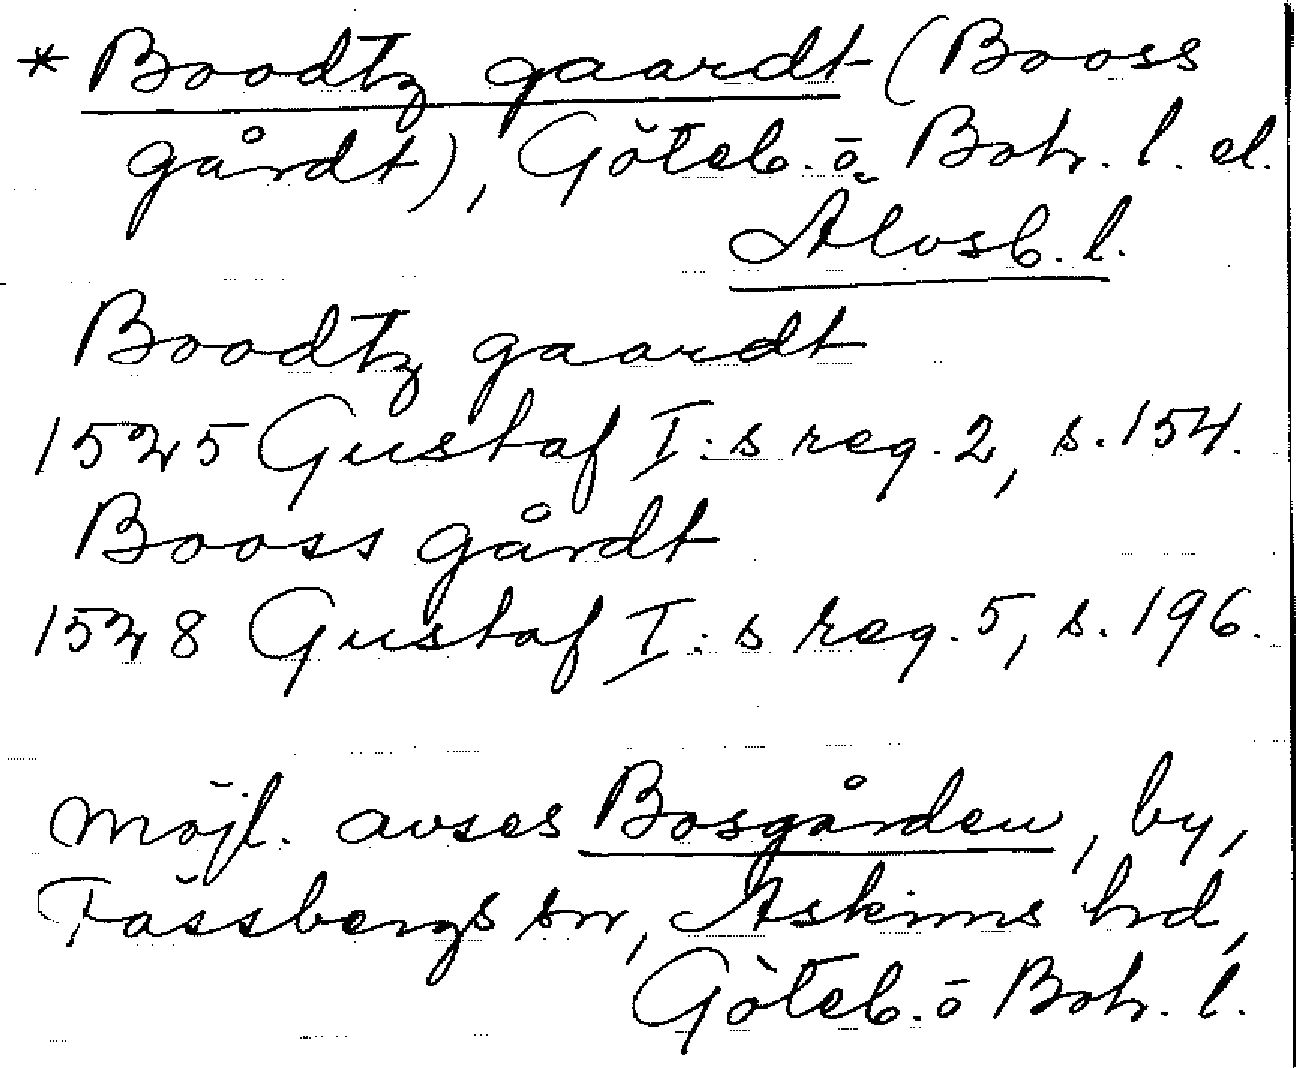 * Boodtz gaardt (Booss
gårdt), Göteb. o. Boh. l. el.
Älvsb. l.
Boodtz gaardt
1525 Gustaf I:s reg. 2, s. 154.
Booss gårdt
1528 Gustaf I:s reg. 5, s. 196.
Möjl. avses Bosgården, by,
Fässbergs sn, Askims hd,
Göteb. o Boh. l.